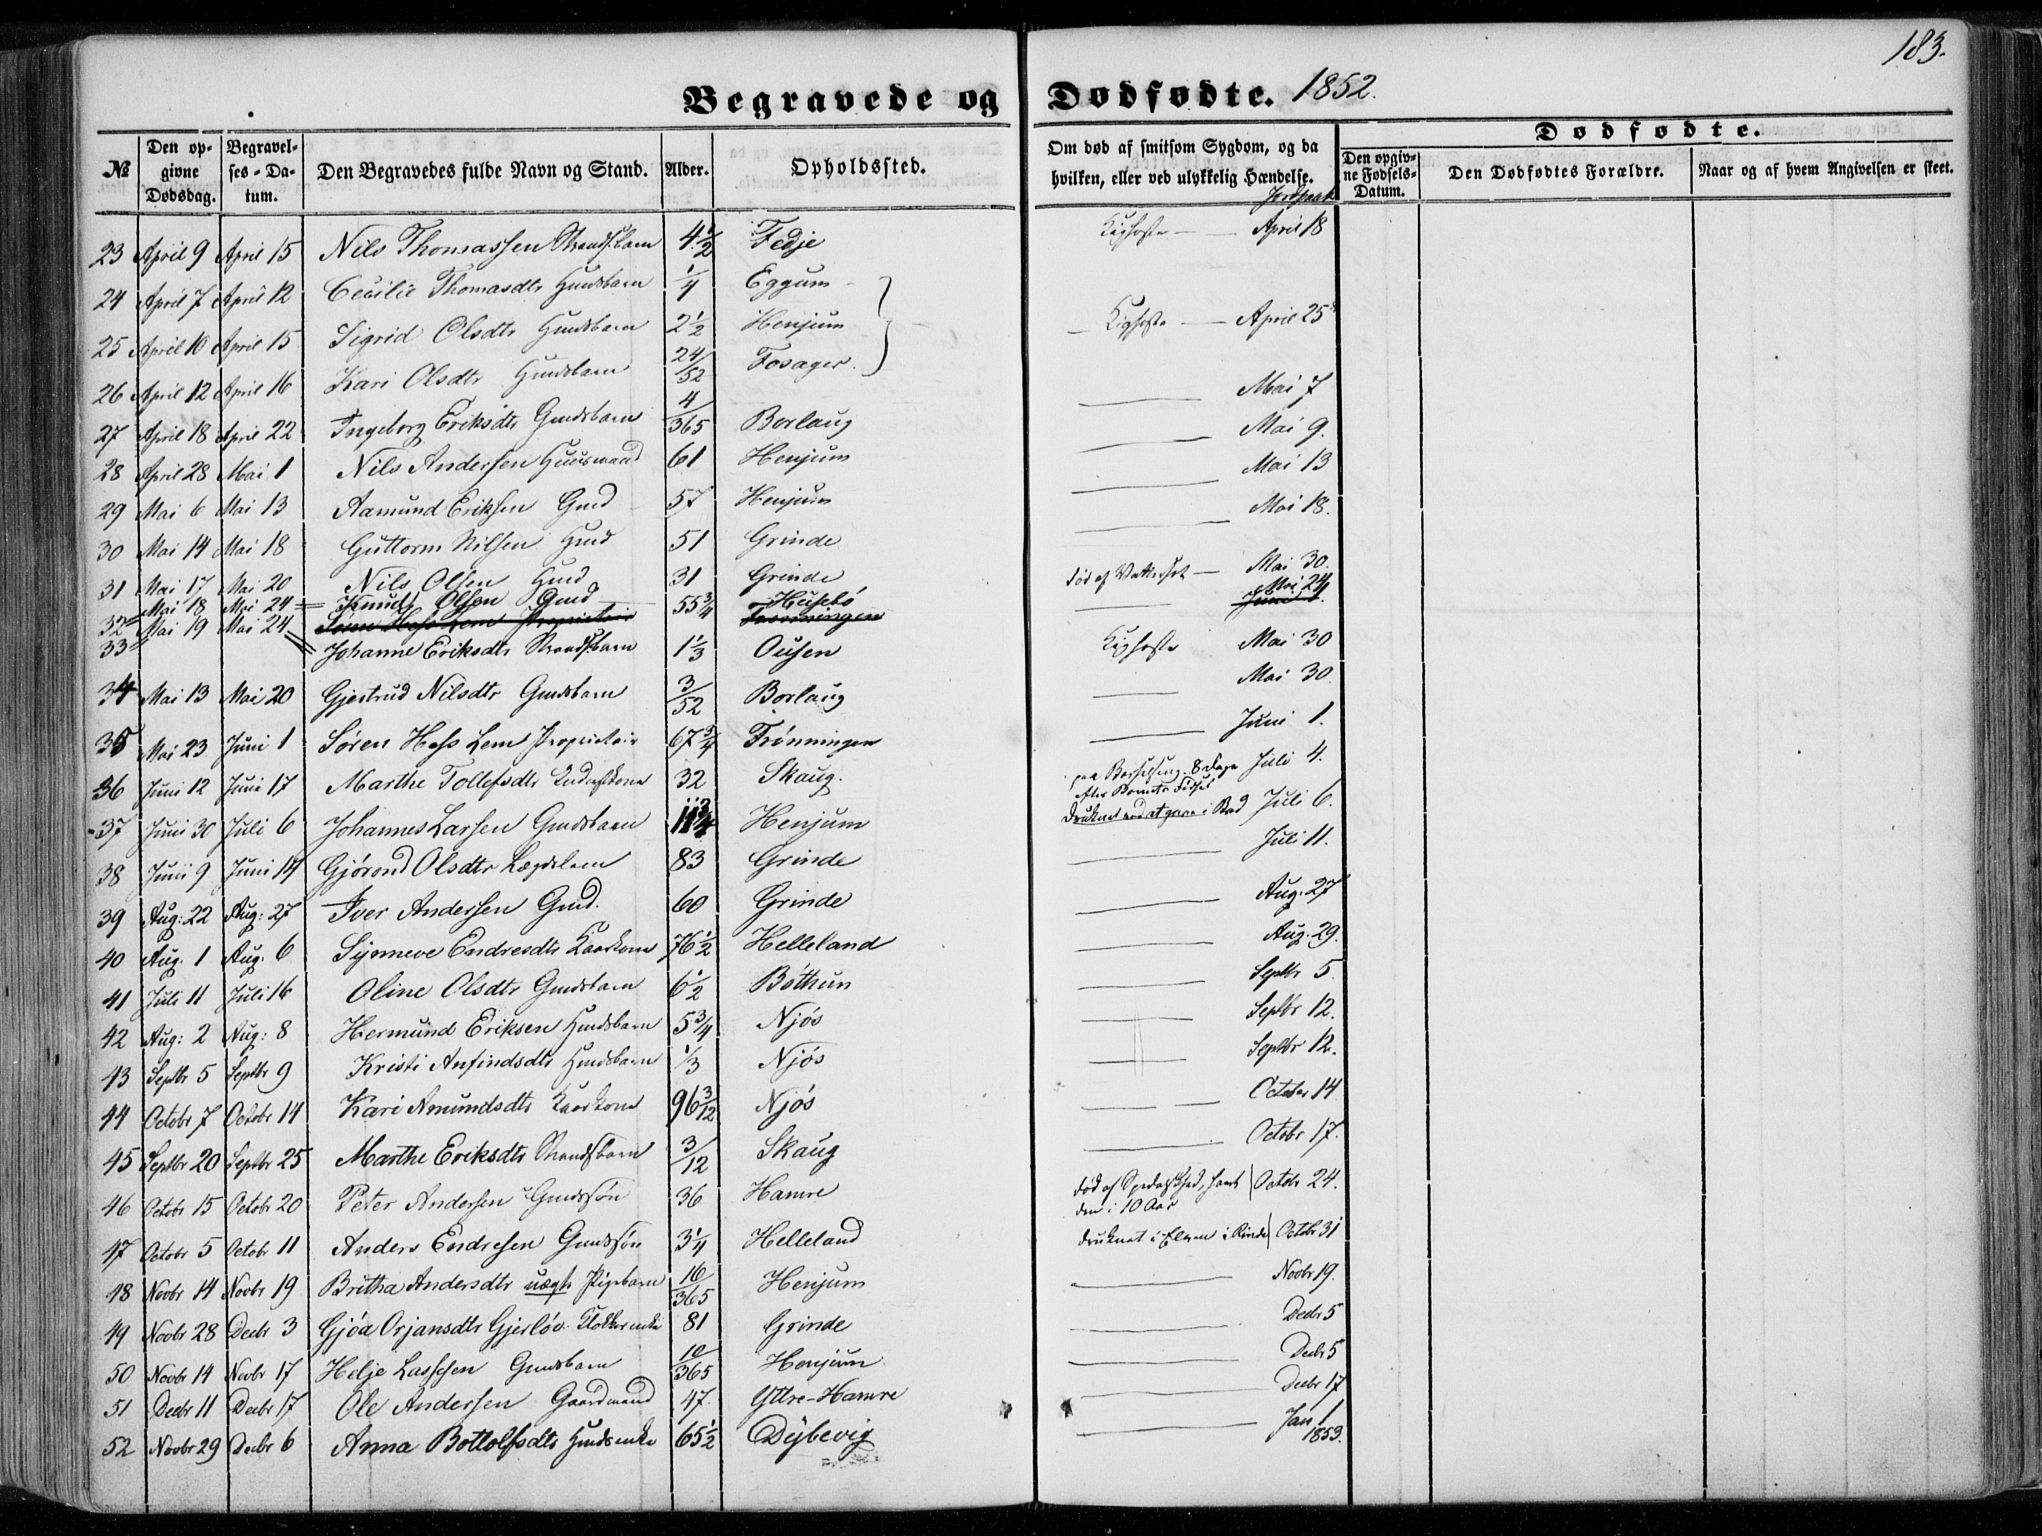 183.
Begravede og Dødfødte. 1852.
№
Den opgivne Dødsdag.
Begravelses-Datum.
Den Begravedes fulde Navn og Stand.
Alder.
Opholdssted.
Om død af smitsom Sygdom, og da hvilken, eller ved ulykkelig Hændelse.
Jordpaak.
Dødfødte.
Den opgivne Fødsels-Datum.
Den Dødfødtes Forældre.
Naar og af hvem Angivelsen er skeet.
23 April 9 April 15 Nils Thomassen Strandsbarn 4 1/2 Fedje Kighoste — April 18
24 April 7 April 12 Cecilie Thomasdtr Huusbarn 1/4 Eggum
25 April 10 April 15 Sigrid Olsdtr Huusbarn 2 1/2 Henjum — Kighoste — April 25
26 April 12 April 16 Kari Olsdtr Huusbarn 24/52 Fosager. — Mai 7
27 April 18 April 22 Ingeborg Eriksdtr Gmdsbarn 4/365 Borlaug — Mai 9.
28 April 28 Mai 1 Nils Andersen Huusmand 61 Henjum — Mai 13
29 Mai 6 Mai 13 Aamund Eriksen Gmd 57 Henjum — Mai 18.
30 Mai 14 Mai 18 Guttorm Nilsen Hmd 51 Grinde
31 Mai 17 Mai 20 Nils Olsen Hmd 31 Grinde død af Vattersot — Mai 30.
32 Mai 18 Mai 24 Knud Olsen Gmd 55 3/4 Husebø — Mai 24
33 Mai 19 Mai 24 Søren Hess Lem Proprietair Frønningen Juni 1.
Johanne Eriksdtr Strandsbarn 1 1/3 Ousen Kighoste Mai 30
34 Mai 13 Mai 20 Gjertrud Nilsdtr Gmdsbarn 3/52 Borlaug — Mai 30.
35 Mai 23 Juni 1 Søren Hess Lem Proprietair 67 3/4 Frønningen — Juni 1.
36 Juni 12 Juni 17 Marthe Tollefsdtr 32 Skaug. paa Barselseng 8 Dage Juli 4.
efter Barnets Fødsel
37 Juni 30 Juli 6 Johannes Larsen Gmdsbarn Henjum Druknet ved at gaae i Bad Juli 6.
38 Juni 9 Juni 14 Gjørond Olsdtr Lægdslem 83 Grinde — Juli 11.
39 Aug: 22 Aug: 27 Iver Andersen Gmd. 60 Grinde — Aug. 27
40 Aug. 1 Aug. 6 Synneve Endresdtr Kaarkone 76 1/2 Helleland — Aug. 29.
41 Juli 11 Juli 16 Oline Olsdtr Gmdsbarn 6 1/2 Bøthun — Septbr 5.
42 Aug: 2 Aug: 8 Hermund Eriksen Hmdsbarn 5 3/4 Njøs — Septbr 12.
43 Septbr 5 Septbr 9 Kristi Anfindsdtr Hmdsbarn 1/3 Njøs — Septbr 12.
44 Octobr 7 Octobr 14 Kari Amundsdtr Kaarkone 96 3/12 Njøs — October 14
45 Septbr 20 Septbr 25 Marthe Eriksdtr Strandsbarn 3/12 Skaug — Octobr 17.
46 Octobr 15 Octobr 20 Peter Andersen Gmdssøn 36 Hamre død af Spedalskhed, havt Octobr 24.
den i 10 Aar
47 Octobr 5 Octobr 11 Anders Endresen Gmdssøn 3 1/4 Helleland druknet i Elven i Rinde Octobr 31
48 Novbr 14 Novbr 19 Britha Andersdtr uægte Pigebarn 16/365 Henjum — Novbr 19.
49 Novbr 28 Decbr 3 Gjøa Orjansdtr Gjerløv 81 Grinde — Decbr 5
50 Novbr 14 Novbr 17 Helje Lassesen Gmdsbarn 10/365 Henjum — Decbr 5
51 Decbr 11 Decbr 17 Ole Andersen Gaardmand 47. Yttre-Hamre — Decbr 17
52 Novbr 29 Decbr 6 Anna Bottolfsdtr Hmdsenke 65 1/2 Dybevig — Jan 1 1853.